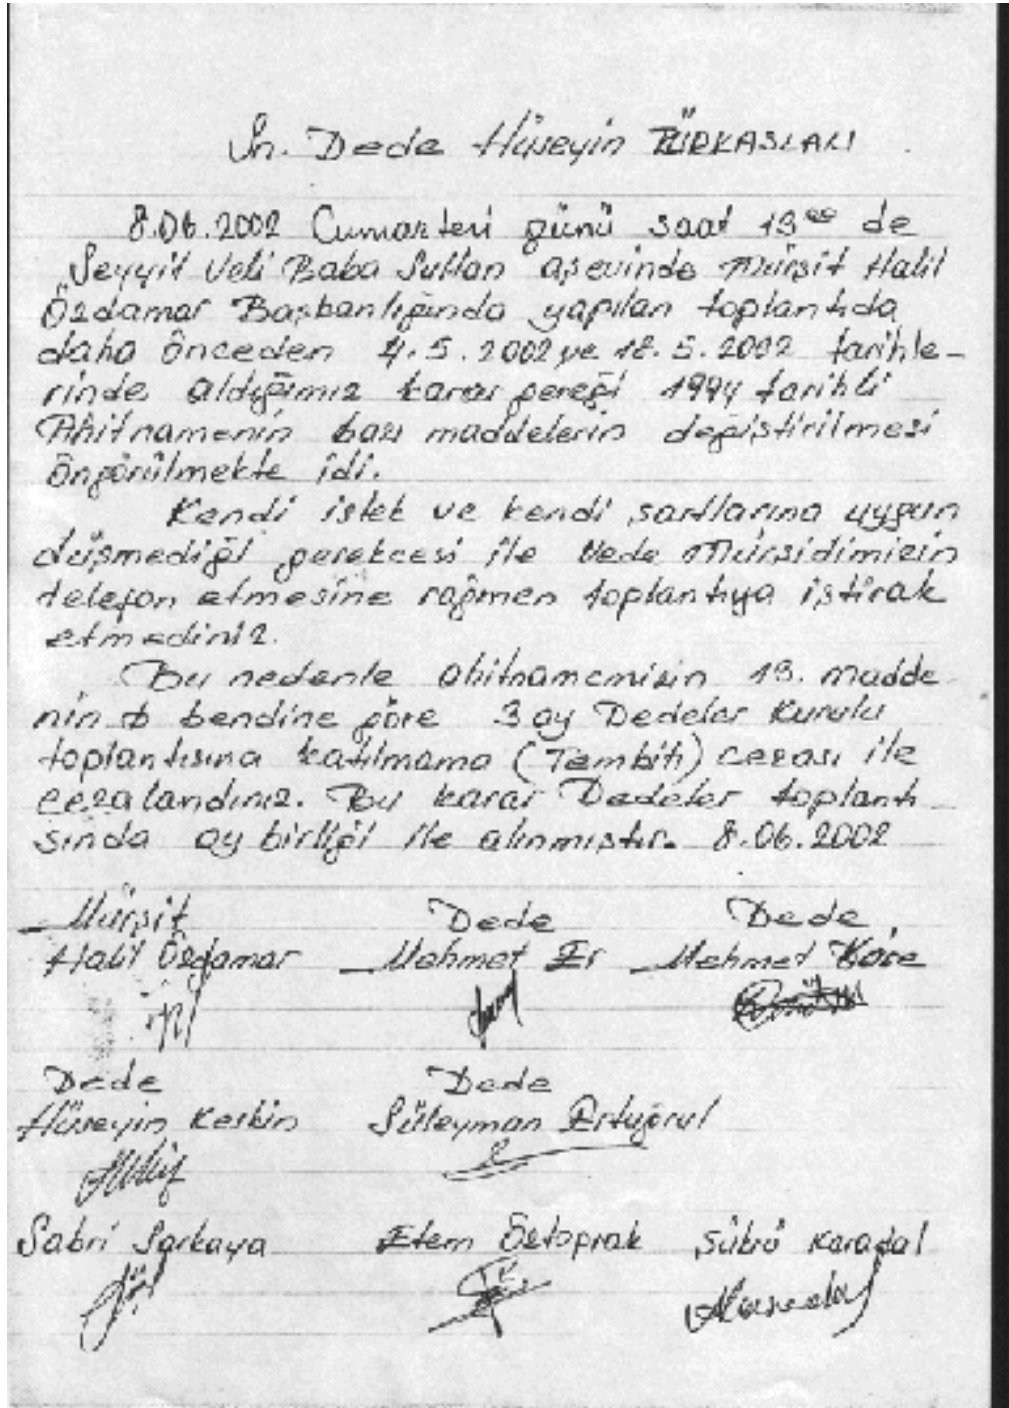 Sn. Dede Hüseyin TÜRKASLAN
8.06.2002 Cumartesi günü saat 13⁰⁰ de
Seyyit Veli Baba Sultan aşevinde Mürşit Halil
Özdamar Başkanlığında yapılan toplantıda
daha önceden 4.5.2002 ve 18.5.2002 tarihle-
rinde aldığımız karar gereği 1994 tarihli
Ahitnamenin bazı maddelerin değiştirilmesi
öngörülmekte idi.
Kendi istek ve kendi şartlarına uygun
düşmediği gerekcesi ile vede Mürşidimizin
telefon etmesine rağmen toplantıya iştirak
etmediniz.
Bu nedenle ahitnamemizin 13. madde
nin bendine göre 3 ay Dedeler Kurulu
toplantısına katılmama (Tembiti) cezası ile
cezalandınız. Bu karar Dedeler toplantı
sında oy birliği ile alınmıştır. 8.06.2002
Mürşit Dede Dede
Halil Özdamar Mehmet Er Mehmet Köse
Dede Dede
Hüseyin Keskin Süleyman Ertuğrul
Sabri Sarkaya Etem Öztoprak Şükrü Karadal